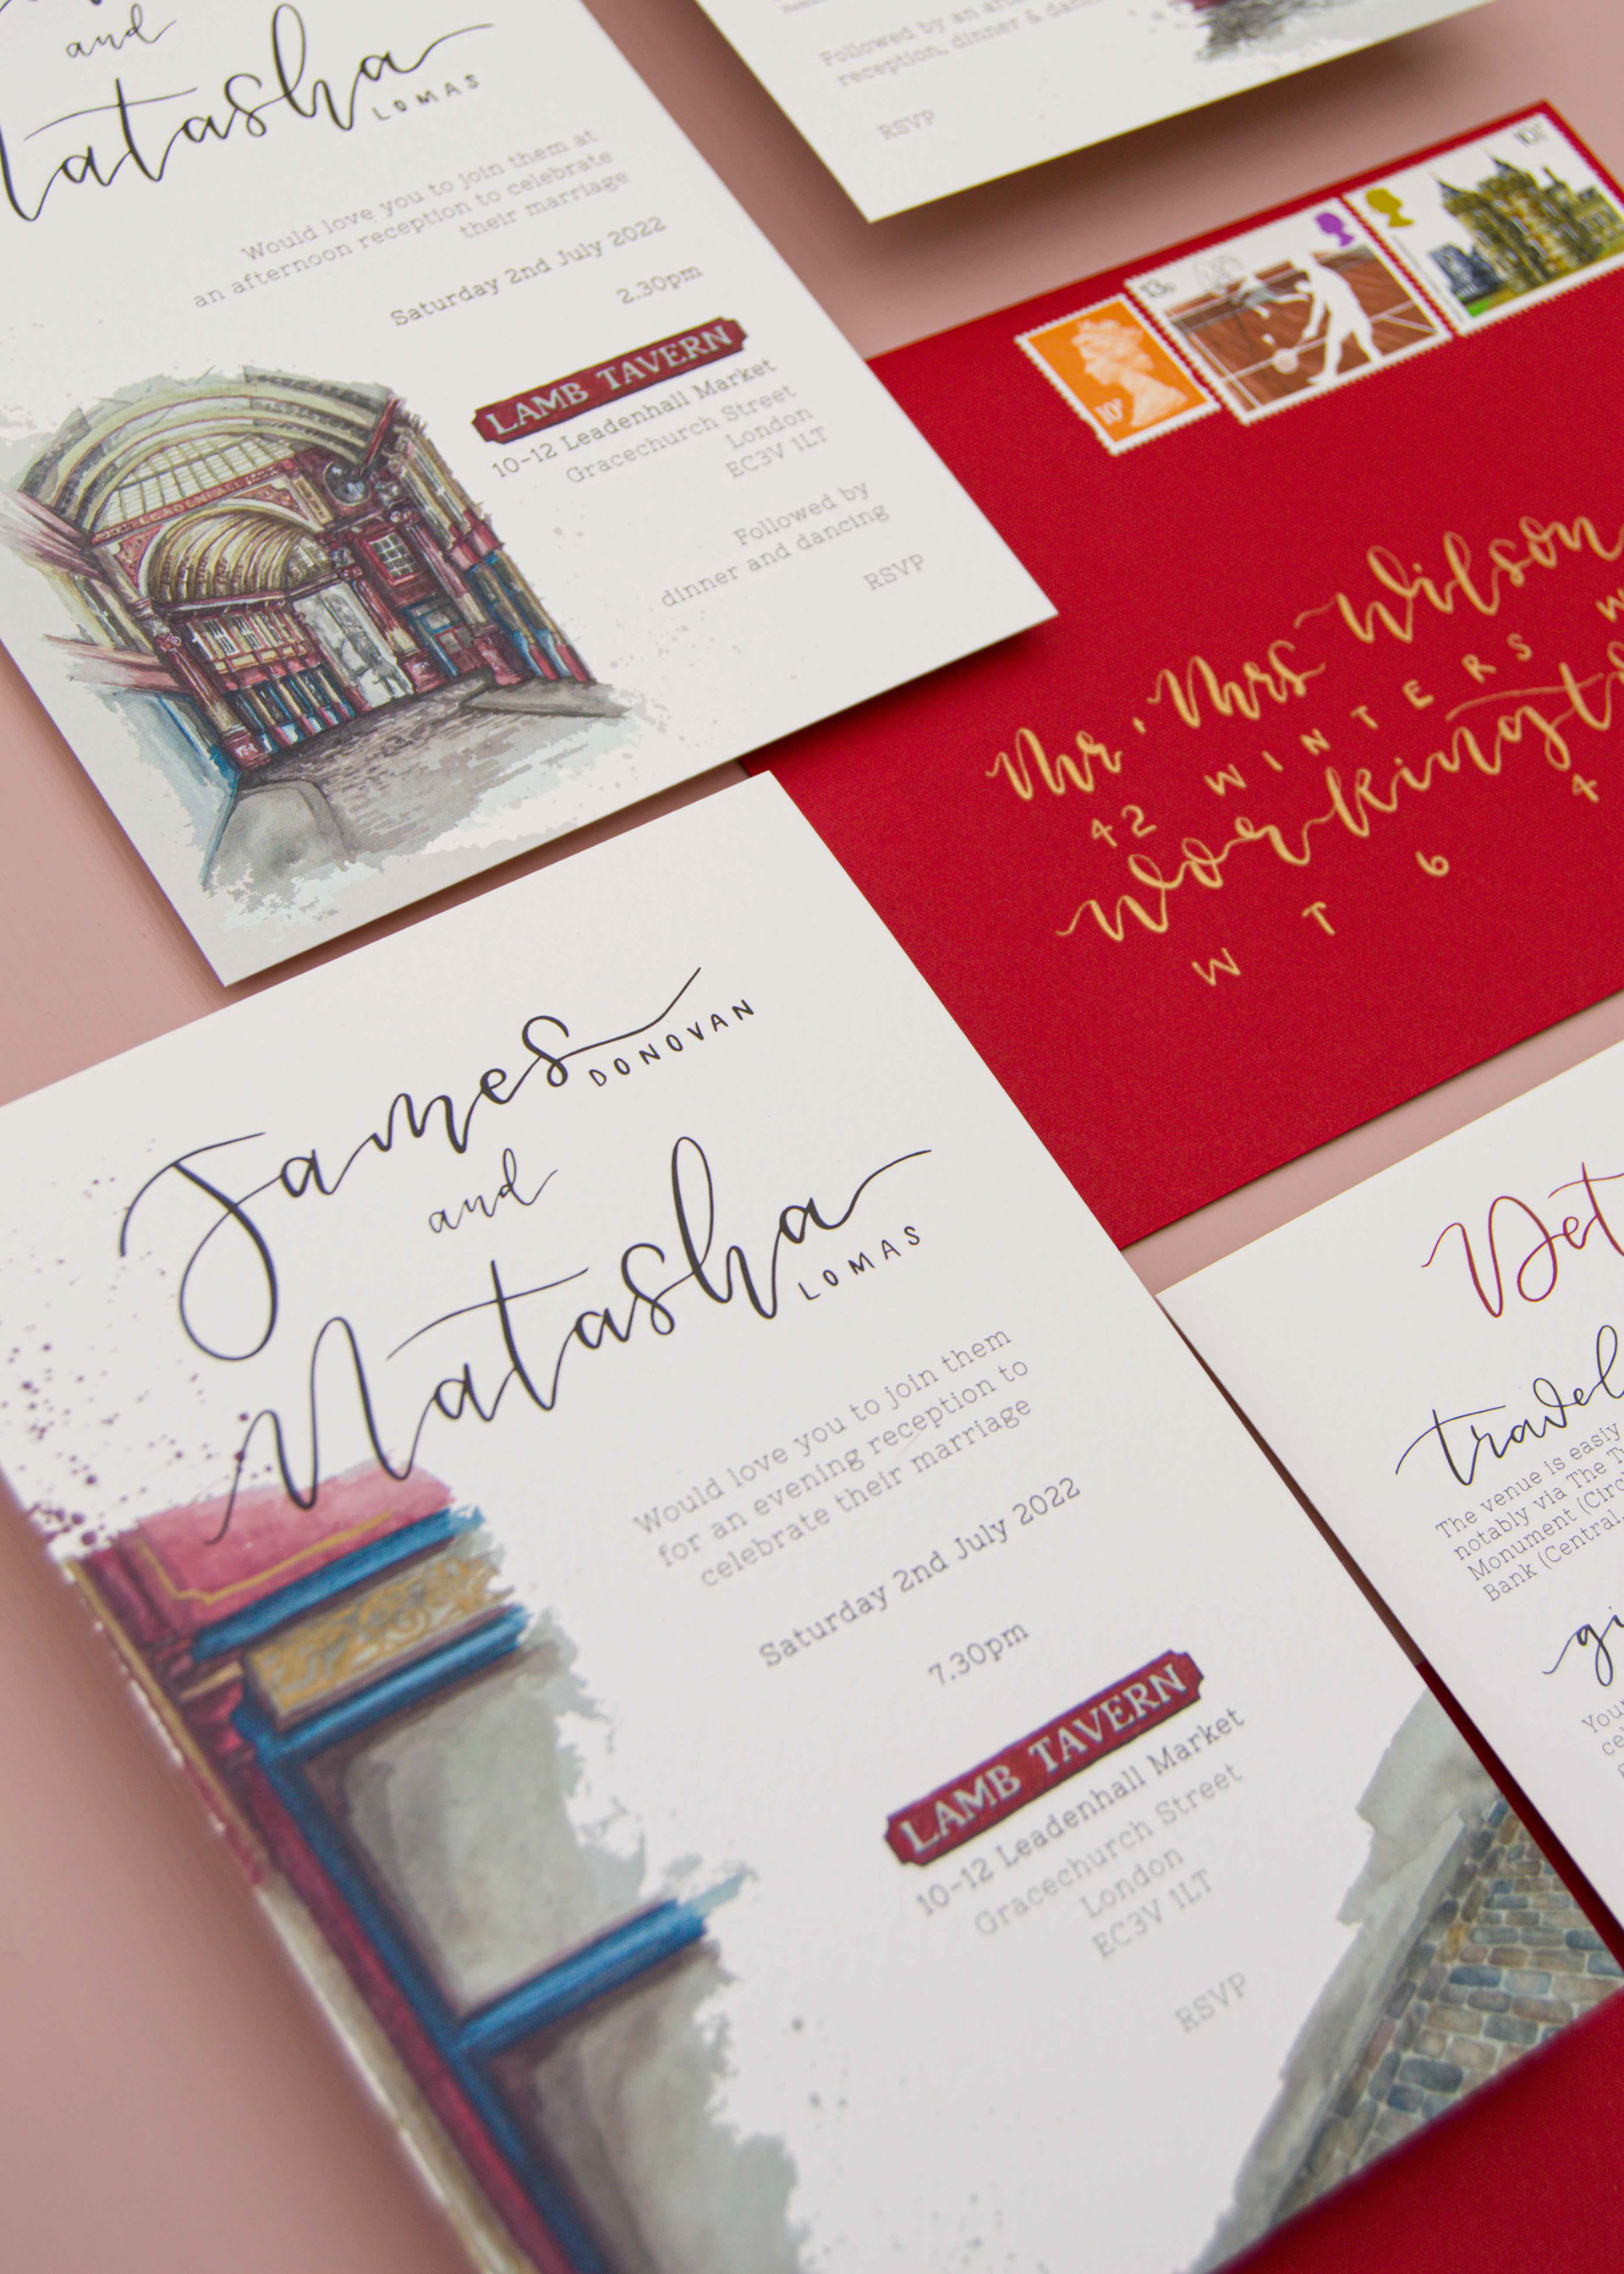 and
Natasha
LOMAS
Would love you to join them at
an afternoon reception to celebrate
their marriage
Saturday 2nd July 2022
2.30pm
LAMB TAVERN
10-12 Leadenhall Market
Gracechurch Street
London
EC3V 1LT
Followed by
dinner and dancing
RSVP
LEADENHALL
Followed by an
reception, dinner &
RSVP
10P
13P
Mr. Mrs Wilson
42 WINTERS
WT6 4
James
DONOVAN
and
Natasha
LOMAS
Would love you to join them
for an evening reception to
celebrate their marriage
Saturday 2nd July 2022
7.30pm
LAMB TAVERN
10-12 Leadenhall Market
Gracechurch Street
London
EC3V 1LT
RSVP
Det
travel
The venue is easiy
notably via The
Monument
Bank (Central,
gi
You